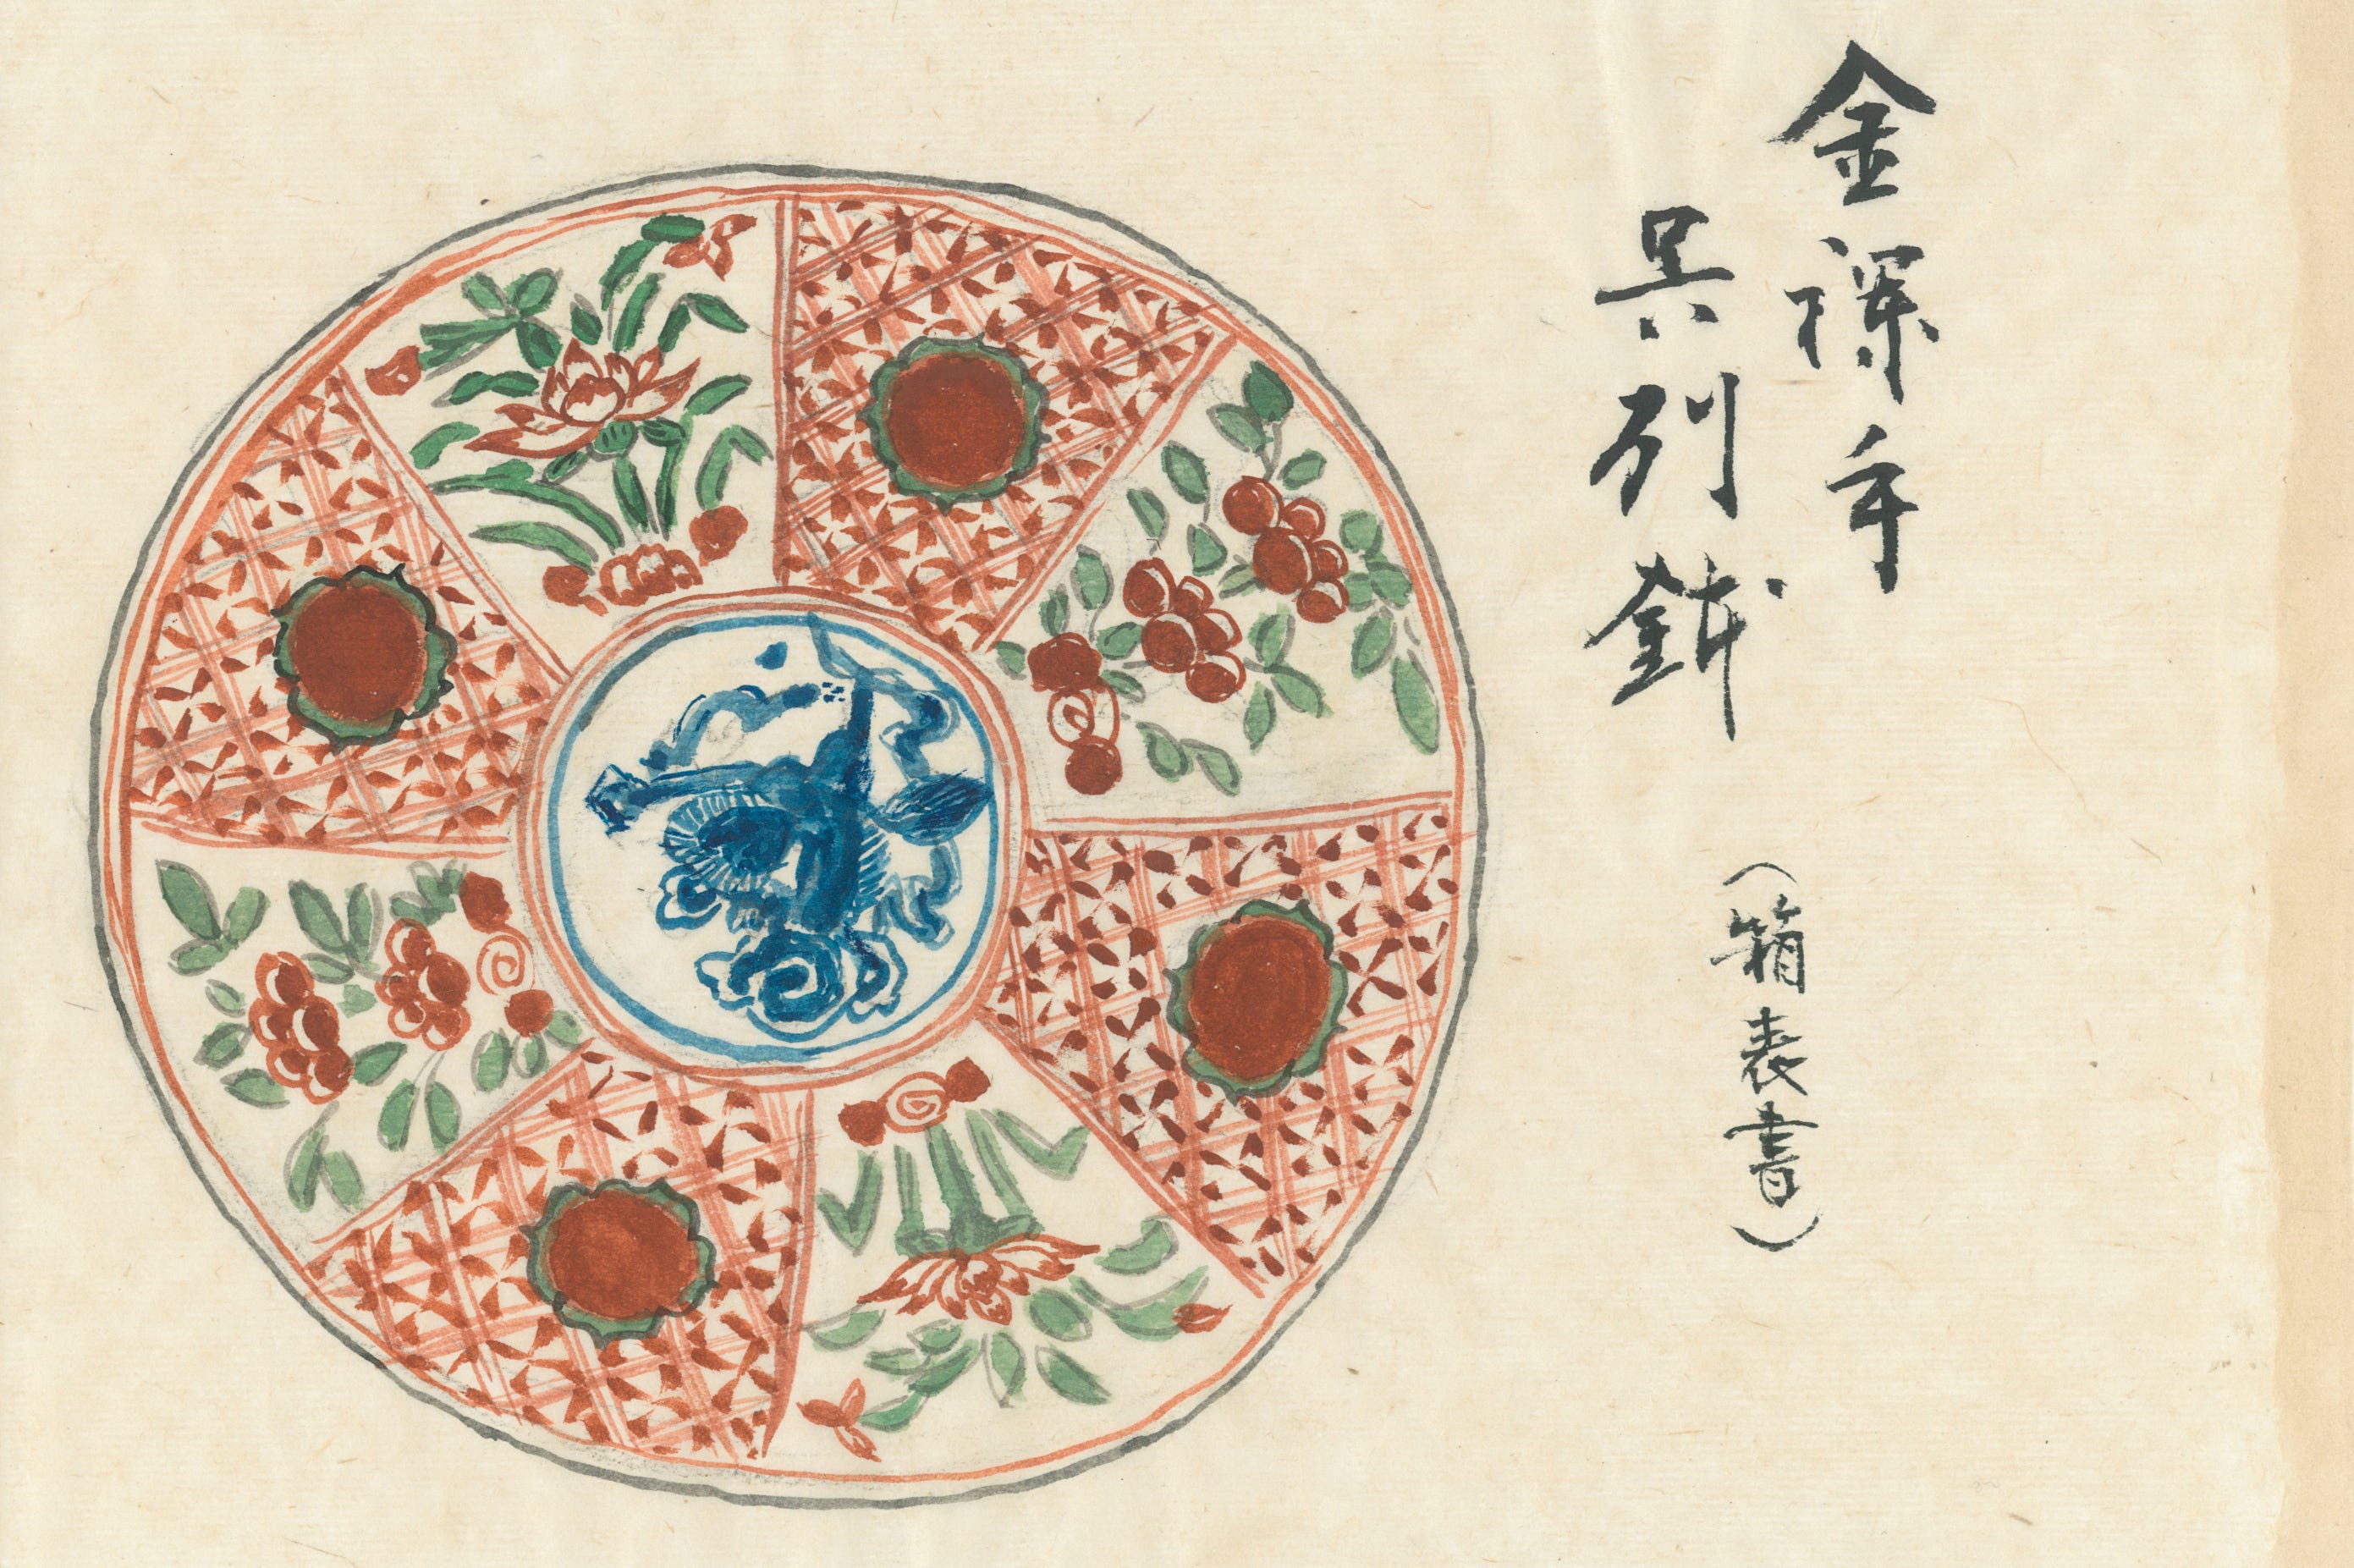 金襴手
呉列鉢
（箱表書）